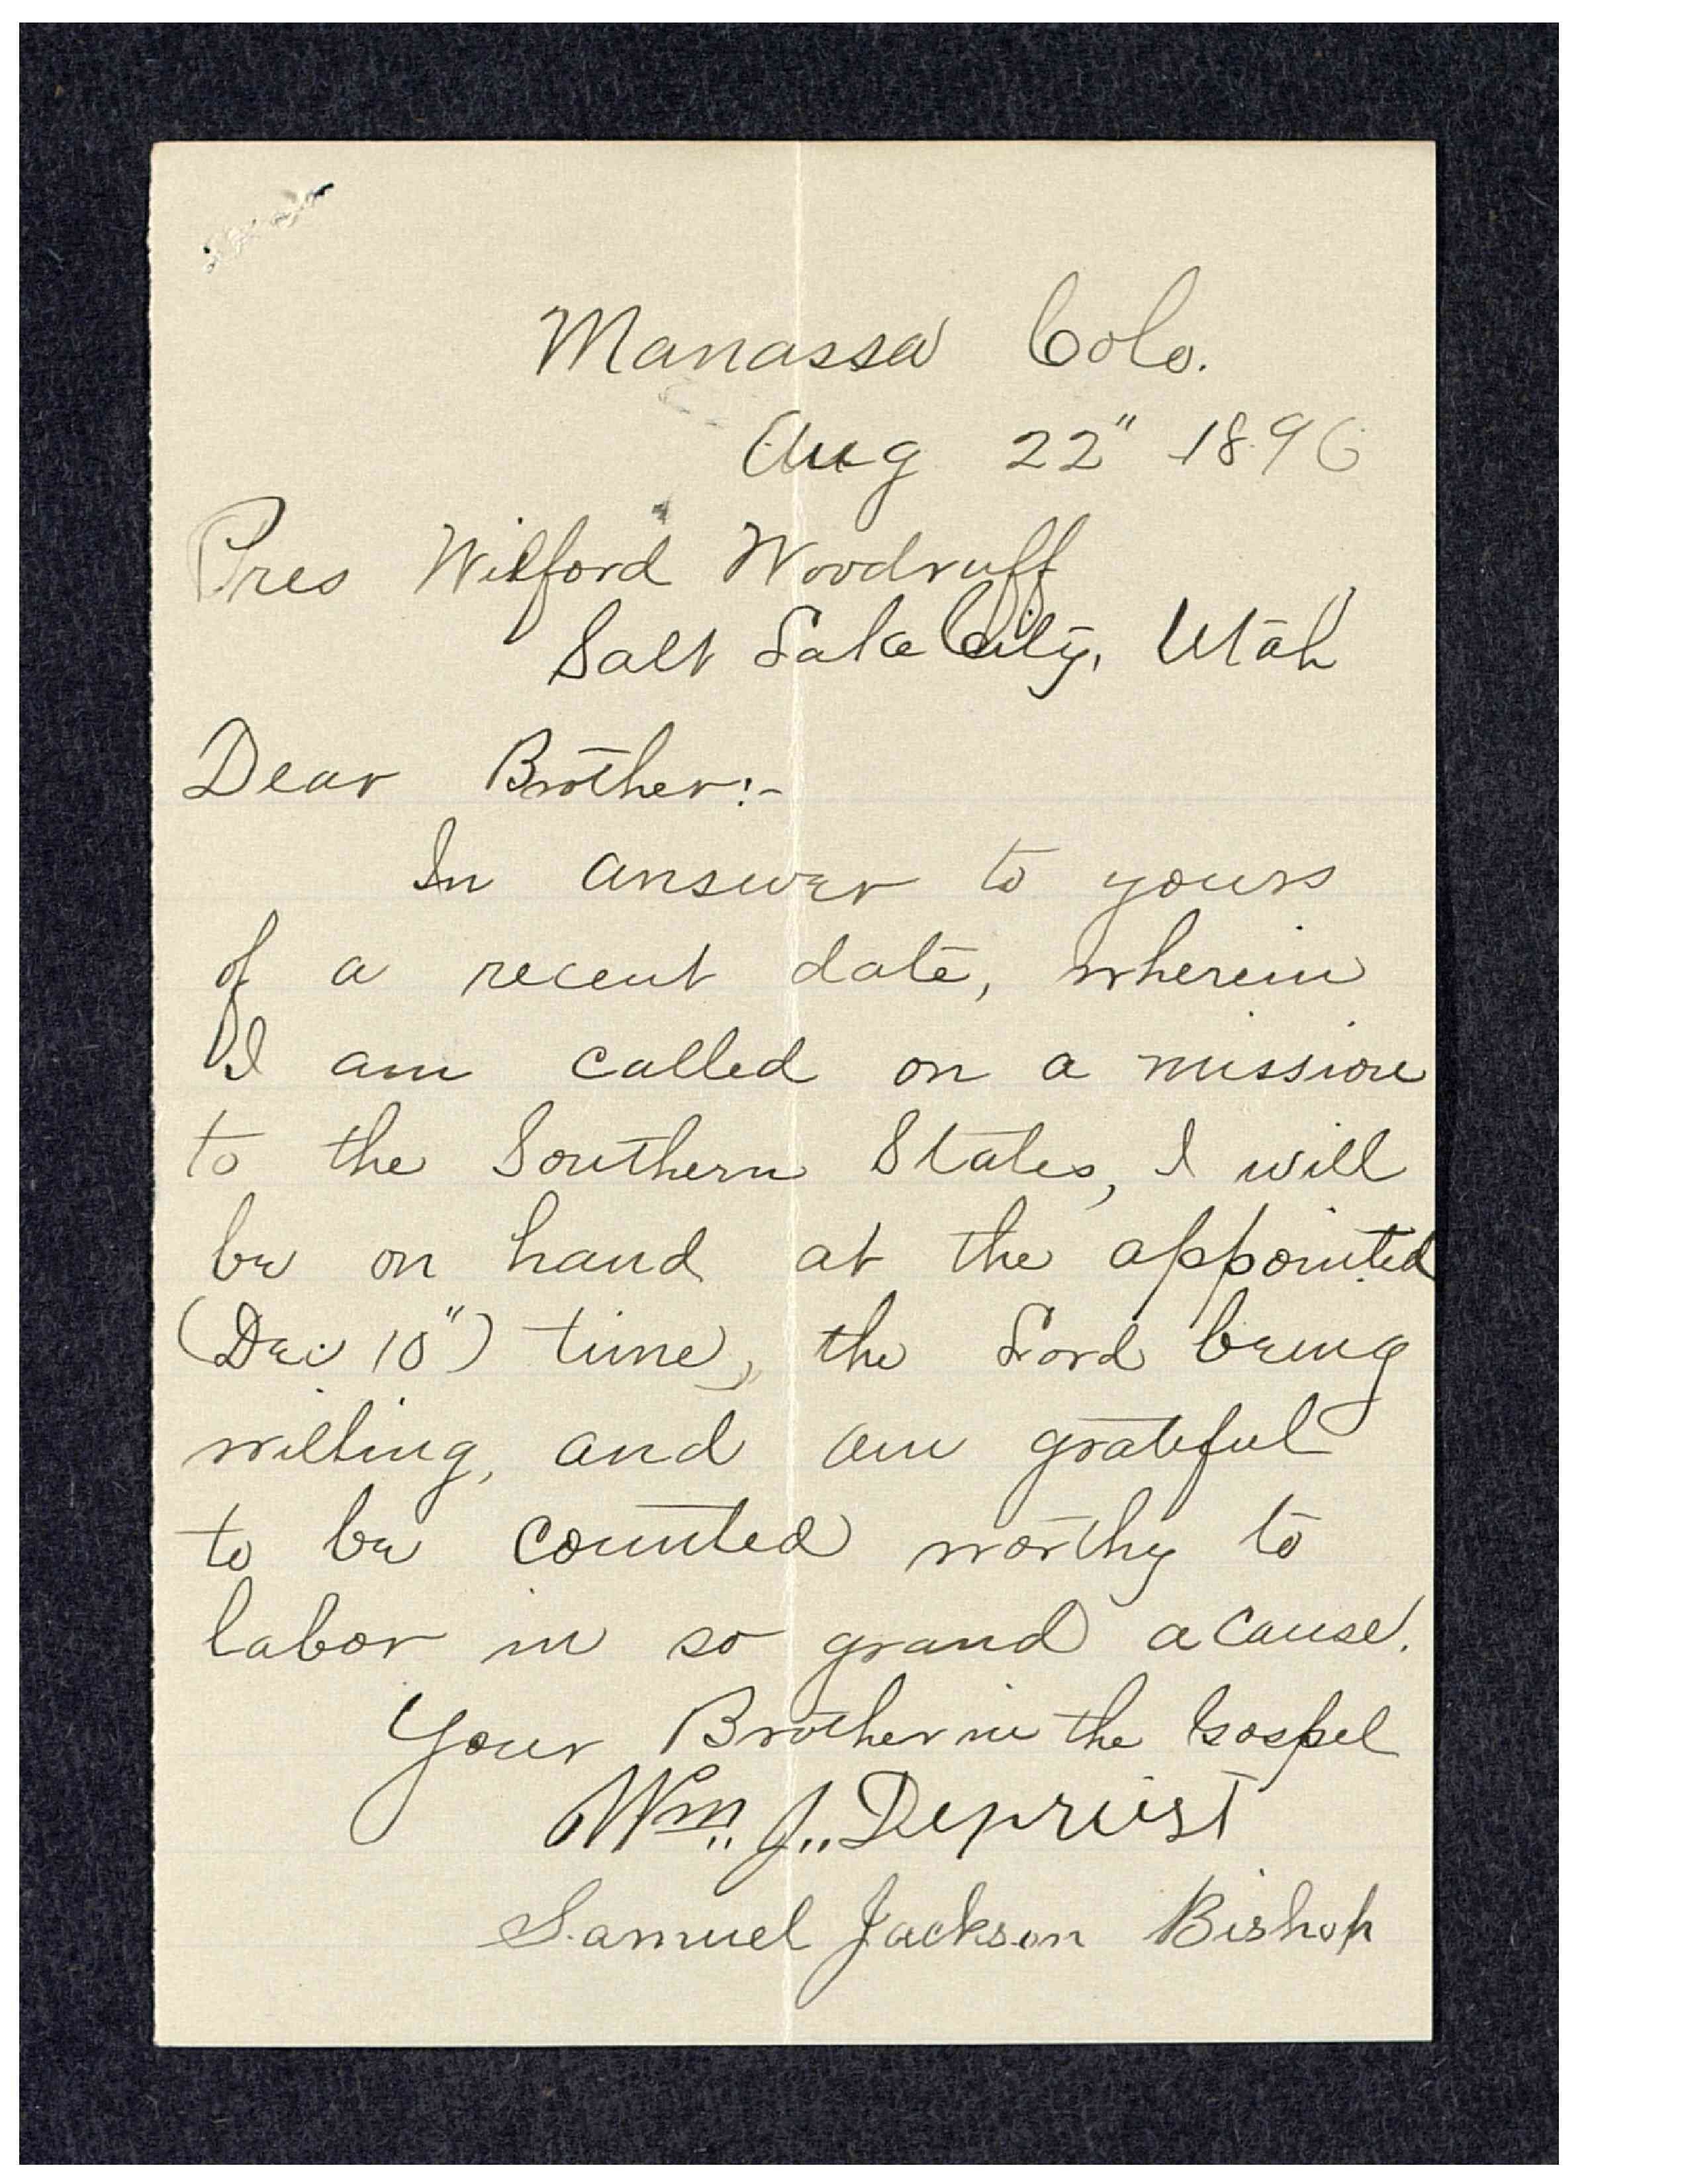 Manassa Colo.
Aug 22" 1896
Pres Wilford Woodruff
Salt Lake City, Utah
Dear Brother:-
In answer to yours
of a recent date, wherein
I am called on a mission
to the Southern States, I will
be on hand at the appointed
(Dec 10") time, the Lord being
willing, and am grateful
to be counted worthy to
labor in so grand a cause.
Your Brother in the Gospel
Wm. J. Depriest
Samuel Jackson Bishop